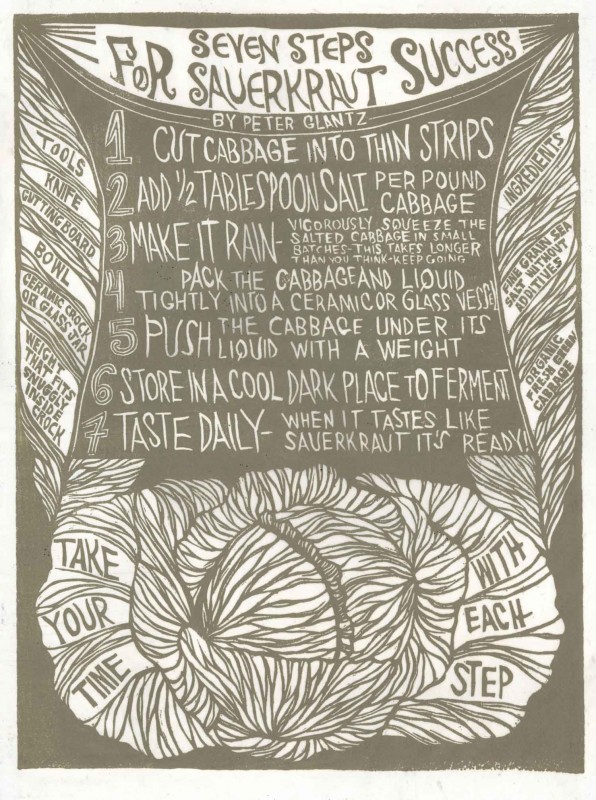 SEVEN STEPS
FOR SAUERKRAUT SUCCESS
BY PETER GLANTZ
1 CUT CABBAGE INTO THIN STRIPS
2 ADD 1/2 TABLESPOON SALT PER POUND
CABBAGE
3 MAKE IT RAIN- VIGOROUSLY SQUEEZE THE
SALTED CABBAGE IN SMALL
BATCHES-THIS TAKES LONGER
THAN YOU THINK-KEEP GOING
4 PACK THE CABBAGE AND LIQUID
TIGHTLY INTO A CERAMIC OR GLASS VESSEL
5 PUSH THE CABBAGE UNDER ITS
LIQUID WITH A WEIGHT
6 STORE IN A COOL DARK PLACE TO FERMENT
7 TASTE DAILY- WHEN IT TASTES LIKE
SAUERKRAUT IT'S READY!
TOOLS
KNIFE
CUTTING BOARD
BOWL
CERAMIC CROCK
OR GLASS JAR
WEIGHT
THAT FITS
SNUGGLY
INSIDE
CROCK
INGREDIENTS
FINE GRAIN SEA
SALT WITHOUT
ADDITIVES
ORGANIC
FRESH GREEN
CABBAGE
TAKE
YOUR
TIME
WITH
EACH
STEP